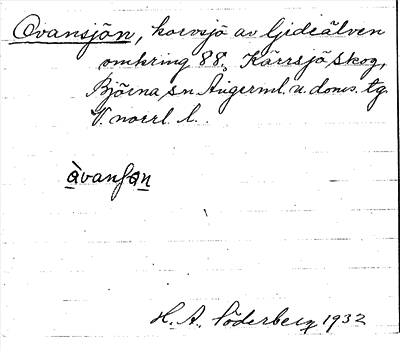 Ovansjön, korvsjö av Gideälven
omkring 88. Kärrsjö skog,
Björna sn. Ångerml. n. doms. tg.
V. norrl. l.
òvanʃən
H. A. Söderberg 1932